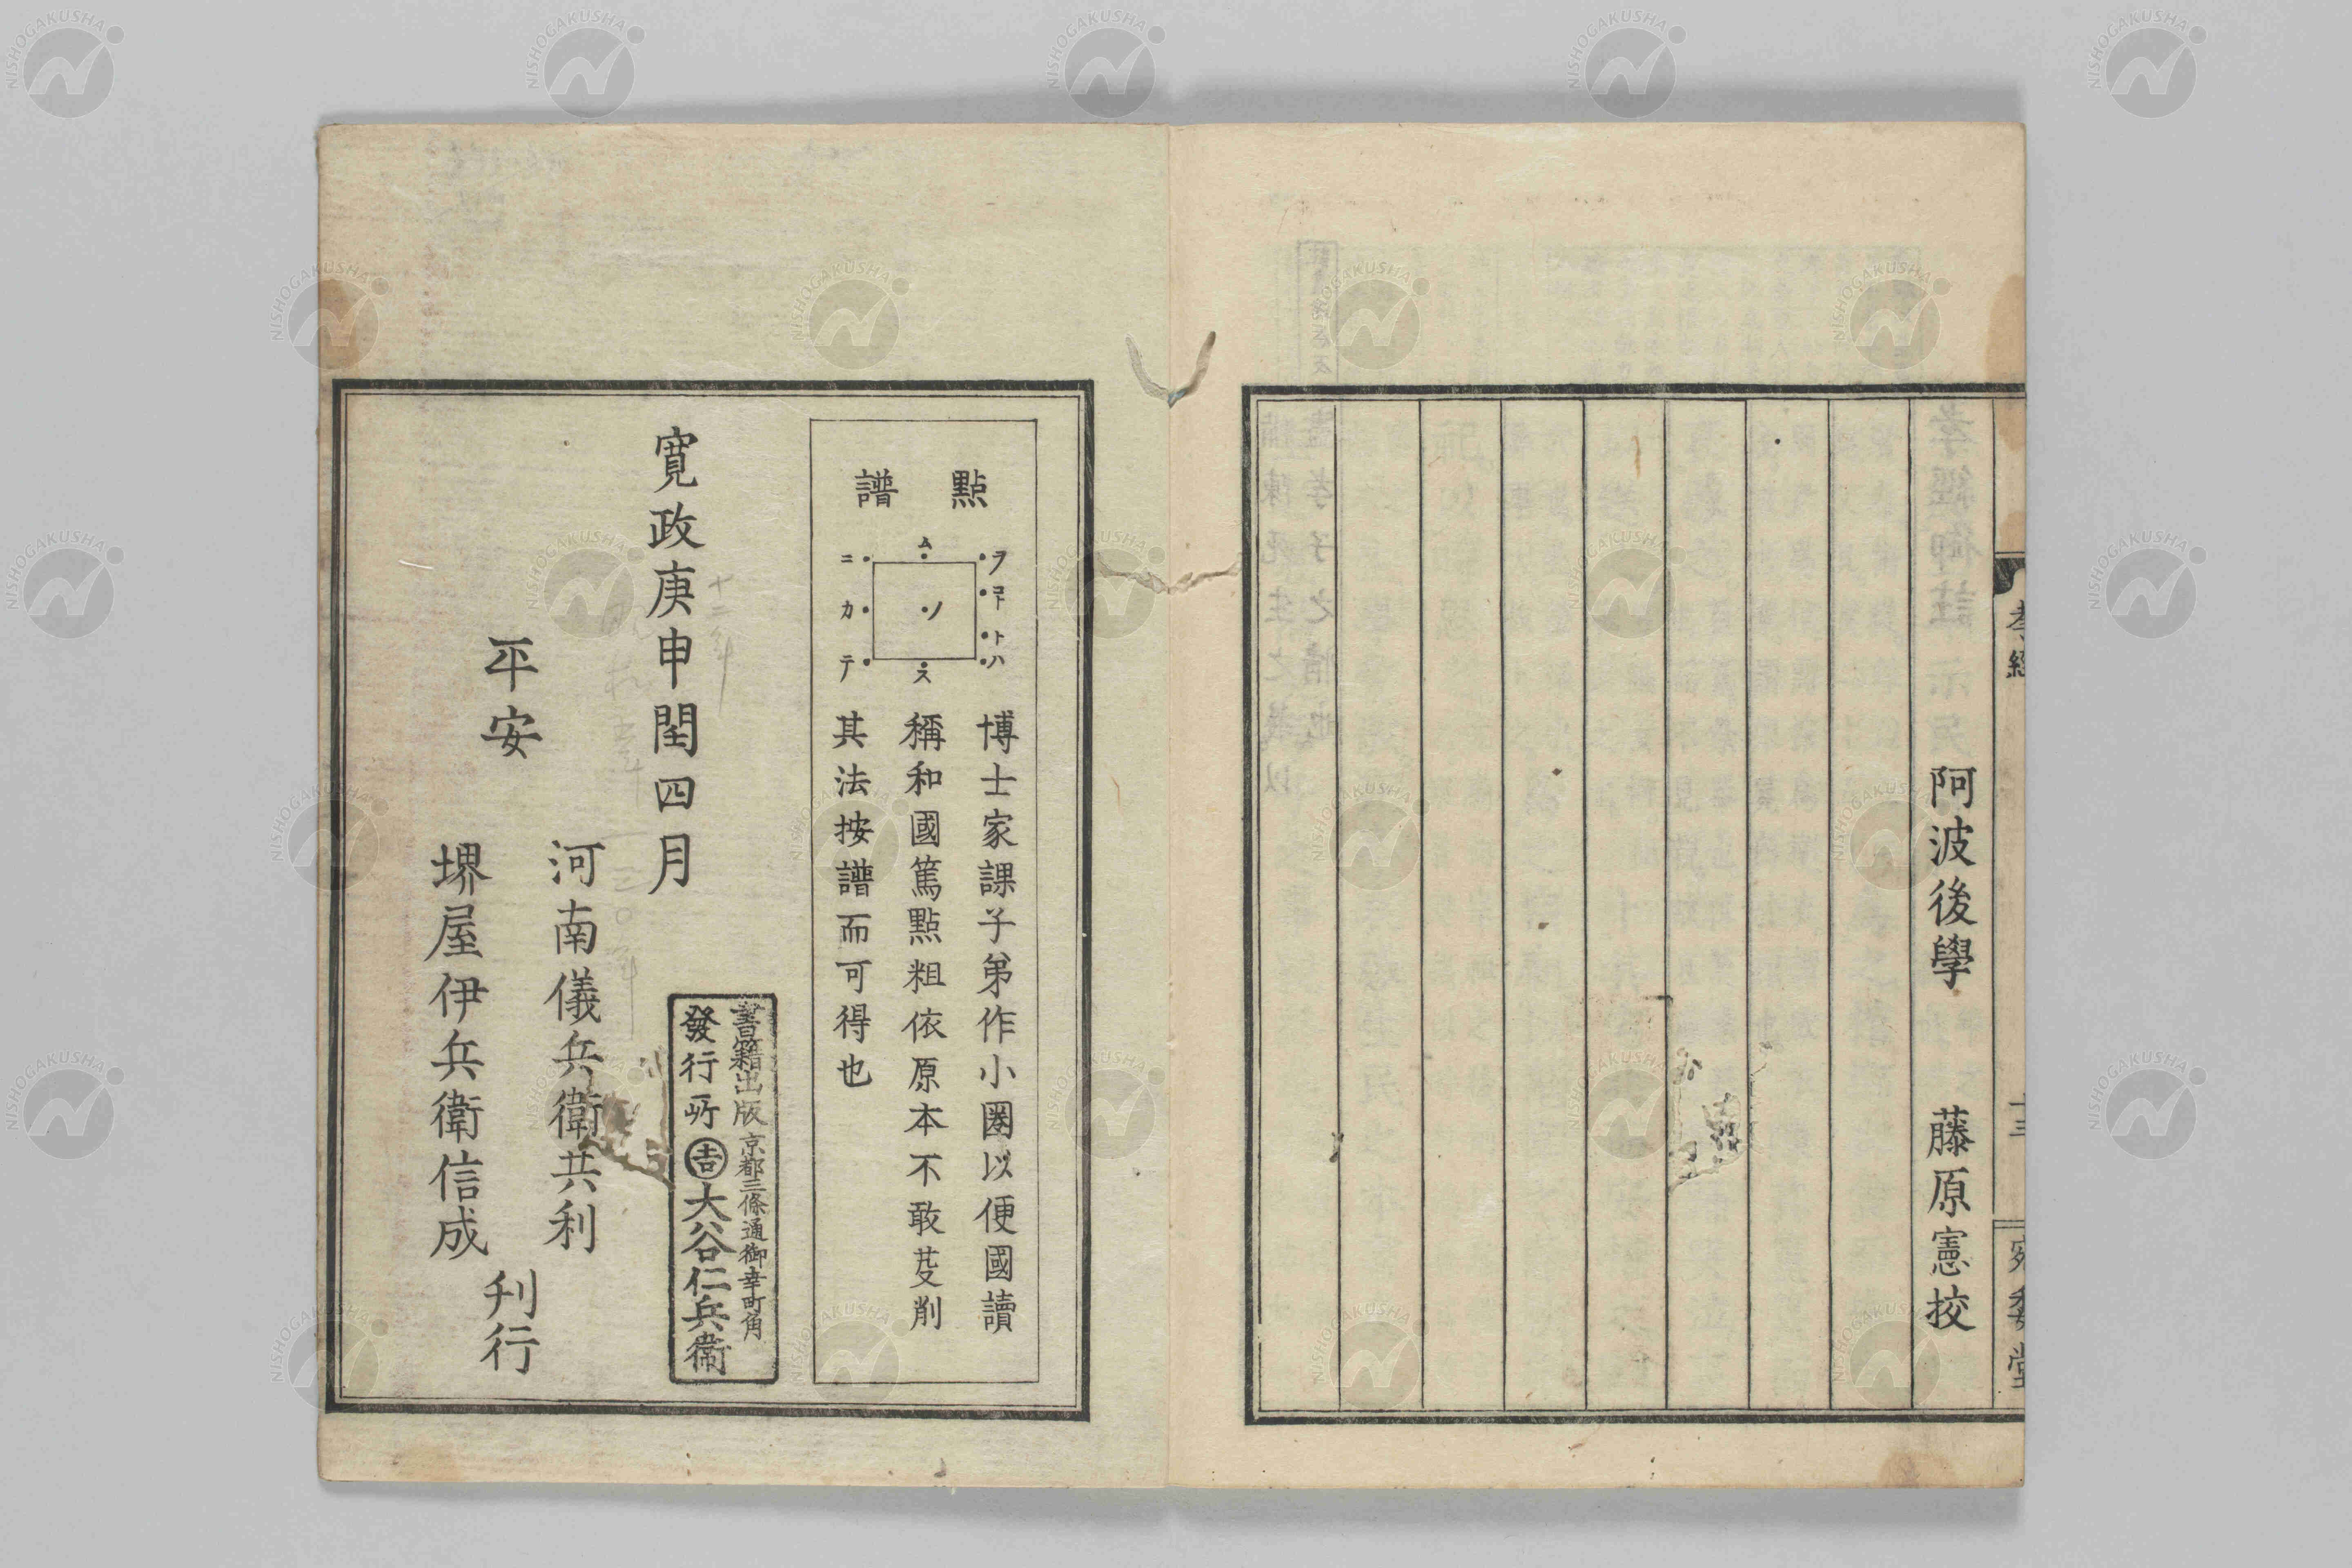 阿波後學 藤原憲挍
孝經
十三
點譜
ヲ
ヿ
ト
ハ
ム
ノ
ス
ニ
カ
テ
博士家課子弟作小圏以便國讀
稱和國篤點粗依原本不敢芟削
其法按譜而可得也
寛政庚申閏四月
十二年
書籍出版 京都三條通御幸町角
發行所 吉 大谷仁兵衛
平安
河南儀兵衛共利
堺屋伊兵衛信成
刊行
NISHOGAKUSHA